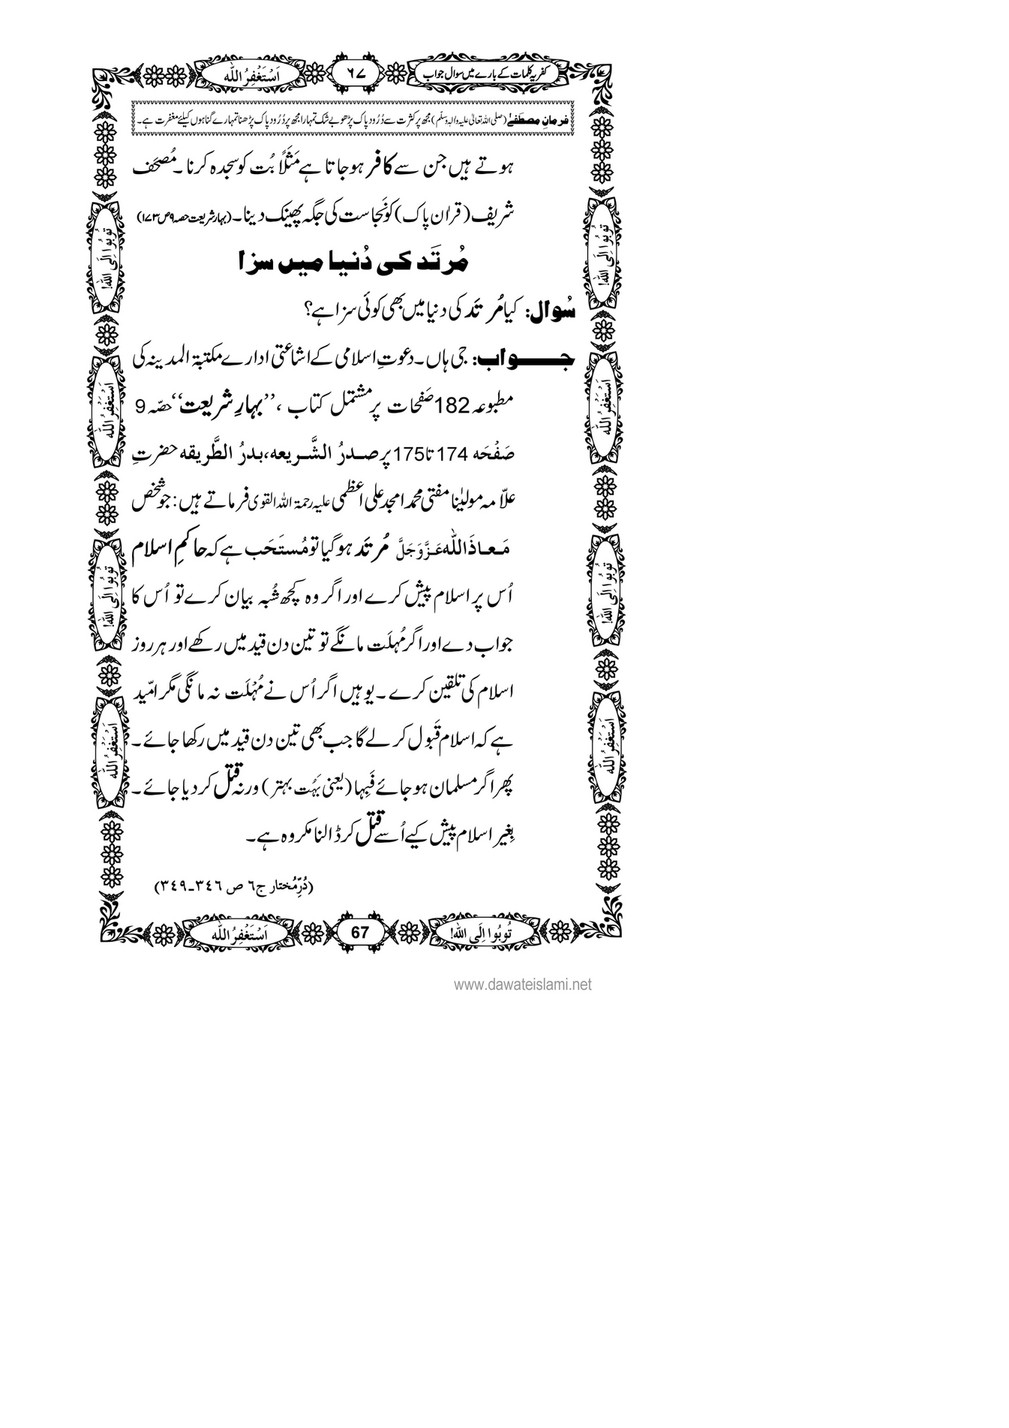 کفریہ کلمات کے بارے میں سوال جواب ٦٧ اَسْتَغْفِرُ اللّٰه
فرمانِ مصطَفٰے (صلی اللہ تعالیٰ علیہ واٰلہٖ وسلّم) مجھ پر کثرت سے دُرُودِ پاک پڑھو بے شک تمہارا مجھ پر دُرُودِ پاک پڑھنا تمہارے گناہوں کیلئے مغفرت ہے۔
ہوتے ہیں جن سے کافر ہو جاتا ہے مَثَلًا بُت کو سجدہ کرنا ۔ مُصحَف
شریف (قران پاک) کو نَجاست کی جگہ پھینک دینا۔ (بہارِ شریعت حصہ ۹ ص ۱۷۳)
مُرتَد کی دُنیا میں سزا
سُوال: کیا مُرتَد کی دنیا میں بھی کوئی سزا ہے؟
جواب: جی ہاں۔ دعوتِ اسلامی کے اشاعتی ادارے مکتبۃ المدینہ کی
مطبوعہ 182 صَفَحات پر مشتمل کتاب ، ’’بہارِ شریعت‘‘ حصّہ 9
صَفْحَہ 174 تا 175 پر صدرُ الشَّریعہ، بدرُ الطَّریقہ حضرتِ
علّامہ مولیٰنا مفتی محمد امجد علی اعظمی علیہ رحمۃ اللہ القوی فرماتے ہیں: جو شخص
مَعاذَاللّٰه عَزَّوَجَلَّ مُرتَد ہو گیا تو مُستَحَب ہے کہ حاکمِ اسلام
اُس پر اسلام پیش کرے اور اگر وہ کچھ شُبہ بیان کرے تو اُس کا
جواب دے اور اگر مُہلَت مانگے تو تین دن قید میں رکھے اور ہر روز
اسلام کی تلقین کرے ۔ یوہیں اگر اُس نے مُہْلَت نہ مانگی مگر امّید
ہے کہ اسلام قَبول کر لے گا جب بھی تین دن قید میں رکھا جائے ۔
پھر اگر مسلمان ہو جائے فَبِہا (یعنی بَہُت بہتر) ورنہ قتل کر دیا جائے ۔
بِغیر اسلام پیش کیے اُسے قتل کر ڈالنا مکروہ ہے ۔
(دُرِّمُختار ج٦ ص ٣٤٦-٣٤٩)
تُوبُوا اِلَی اللّٰه!
اَسْتَغْفِرُ اللّٰه
تُوبُوا اِلَی اللّٰه!
اَسْتَغْفِرُ اللّٰه
تُوبُوا اِلَی اللّٰه!
اَسْتَغْفِرُ اللّٰه
تُوبُوا اِلَی اللّٰه!
اَسْتَغْفِرُ اللّٰه
تُوبُوا اِلَی اللّٰه! 67 اَسْتَغْفِرُ اللّٰه
www.dawateislami.net